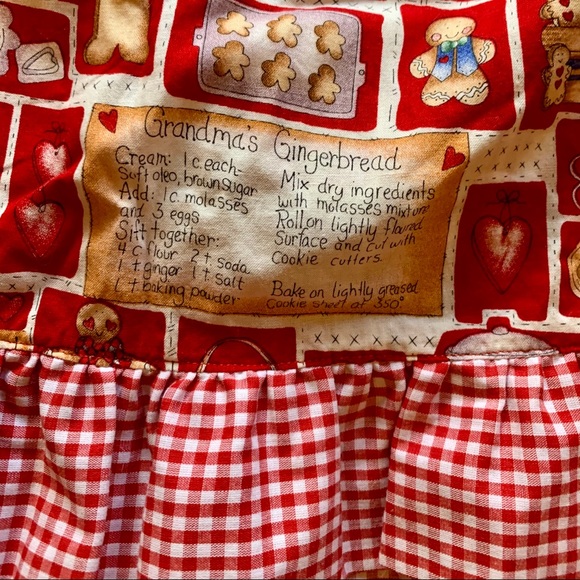 Grandma's Gingerbread
Cream: 1 c. each-
Soft oleo, brown sugar
Add: 1 c. molasses
and 3 eggs
Sift together:
4 c flour 2 t. soda
1 t ginger 1 t. salt
1 t baking powder
Mix dry ingredients
with molasses mixture
Roll on lightly floured
Surface and cut with
Cookie cutters.
Bake on lightly greased
Cookie sheet at 350°